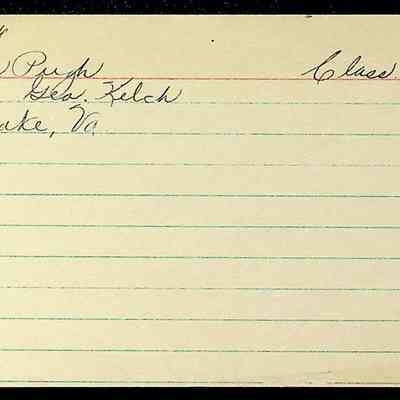 Pugh Class
Geo. Kelch
ake, Va